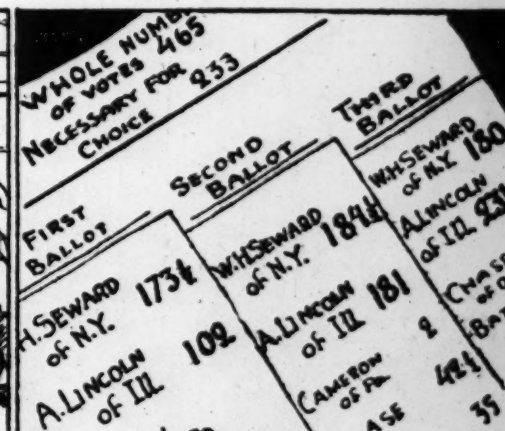 WHOLE NUMBER
OF VOTES 465
NECESSARY FOR
CHOICE 233
FIRST
BALLOT
H. SEWARD
of N.Y. 173½
A. LINCOLN
of ILL 102
SECOND
BALLOT
W.H. SEWARD
of N.Y. 184½
A. LINCOLN
of ILL 181
CAMERON
OF PA 2
ASE 42½
35
THIRD
BALLOT
W.H. SEWARD
of N.Y. 180
A. LINCOLN
of ILL 231
CHASE
of O
BAT